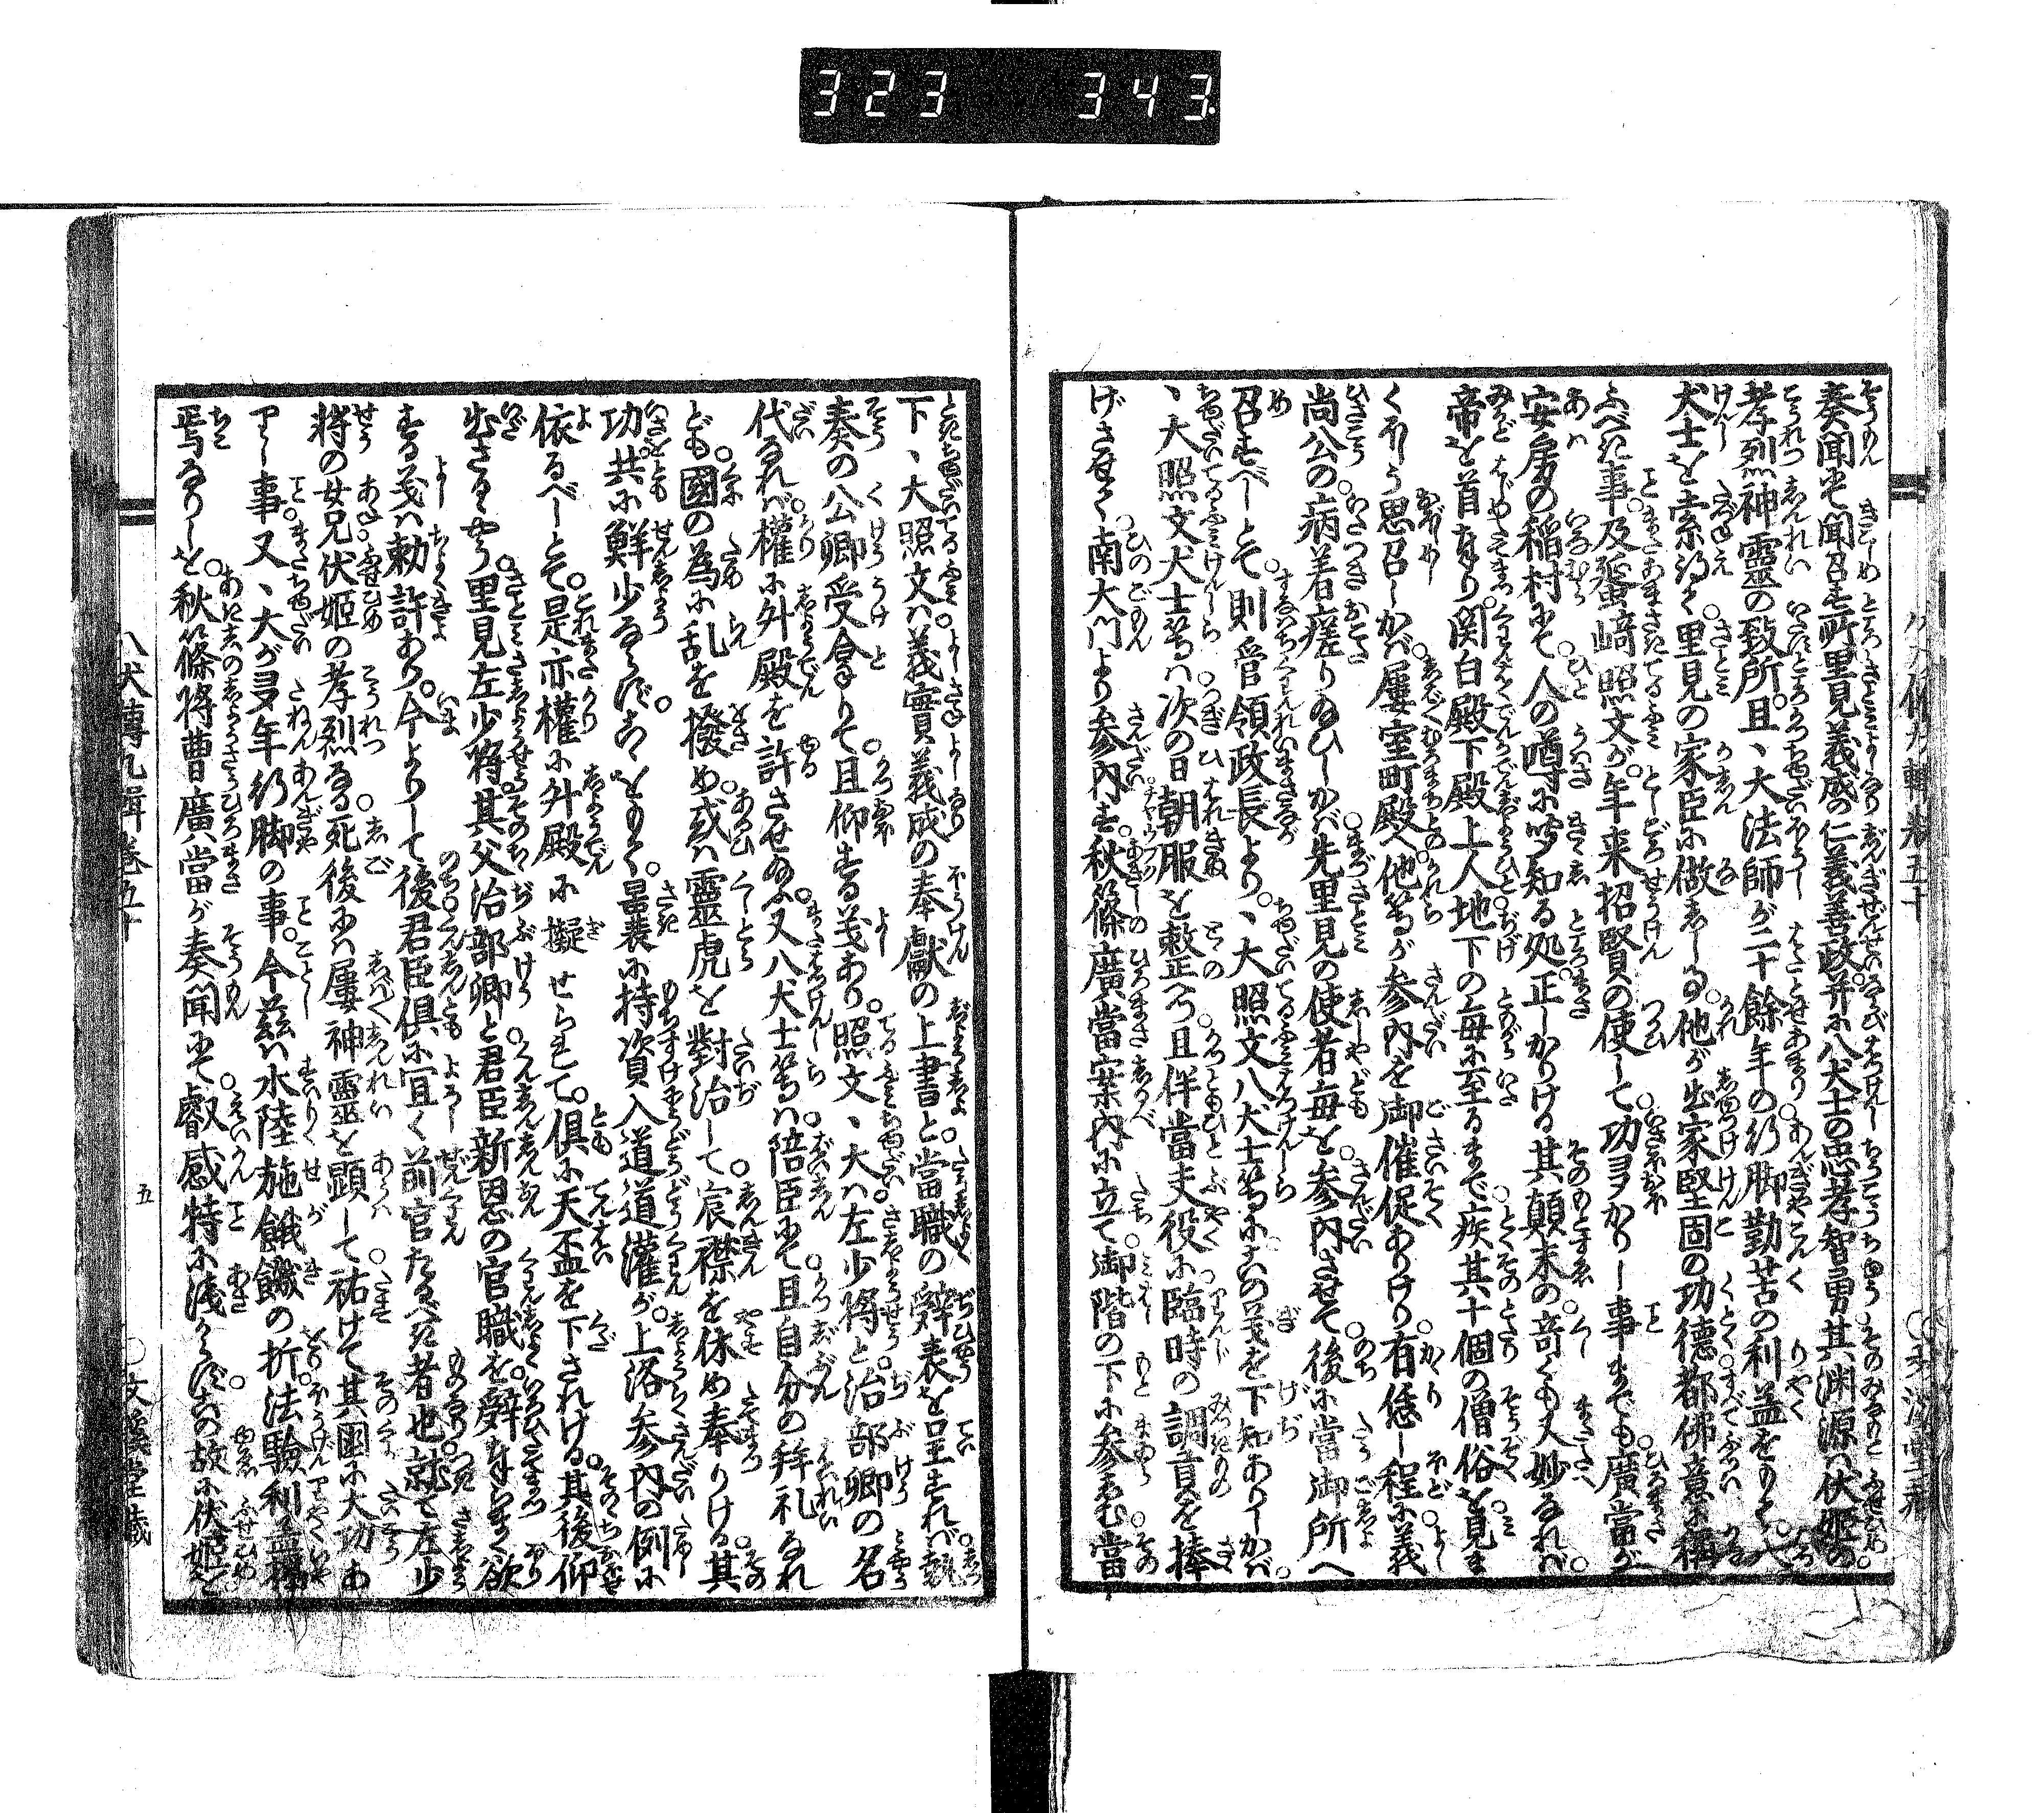 323 343
奏聞す。聞召す所里見義成の仁義善政、并に八犬士の忠孝智勇、其淵源は伏姫の
孝烈神霊の致所。且、大法師が二十餘年の行脚勤苦の利益をもて、八
犬士を索得て、里見の家臣に做しゝ。他が出家堅固の功徳都佛意に稱
ふべき事、及蜑崎照文が、年来招賢の使して功多かりし事までも、廣當が
安房の稲村にて、人の噂に聞知る処、正しかりける其顛末の奇くも又妙なれば、
帝を首まゐり、関白殿下殿上人地下の毎に至るまで、疾其十個の僧俗を見ま
くほしう思召しかば、屢室町殿へ他等が参内を御催促ありけり。有恁し程に義
尚公の病着瘥りゐひしかば、先里見の使者毎を、参内させて後に當御所へ
召すべしとて、則管領政長より、、大照文八犬士等に、この義を下知ありしかば、
、大照文犬士等は、次の日朝服を整へ、且伴當夫役に、臨時の調貢を捧
げさせて、南大門より参内す。秋篠廣當案内に立て、御階の下に参る。當
下、大照文は、義實義成の奉獻の上書と、當職の辞表を呈すれば、執
奏の公卿受拿りて、且仰する義あり。照文、大は、左少将と治部卿の名
代なれば、權に外殿を許させ給ふ。又八犬士等は、陪臣にて、且自分の拜礼なれ
ども、國の為に乱を撥め、或は靈虎を對治して、宸襟を休め奉りける、其
功共に鮮少ならず。こゝをもて、曩裏に持資入道道灌が、上洛参内の例に
依るべしとて、是亦權に外殿に擬せられて、倶に天盃を下されける。其後仰
出さるゝやう、里見左少将、其父治部卿と、君臣新恩の官職を、辞まく欲
する義は勅許あり。今よりして後、君臣倶に宜く前官たるべき者也。就て左少
将の女兄伏姫の孝烈なる、死後には屢神靈を顕して、祐けて其國に大功あ
りし事、又、大が多年行脚の事、今茲は水陸施餓鬼の折、法驗利益掲
焉なりしを、秋篠将曹廣當が奏聞にて、叡感特に浅からず。この故に伏姫を
八犬傳九輯巻五十
五
○文溪堂蔵